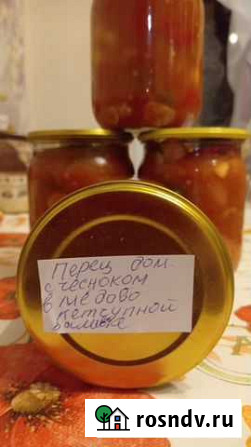 Перец дом.
с чесноком
в медово
кетчупной
заливке
rosndv.ru